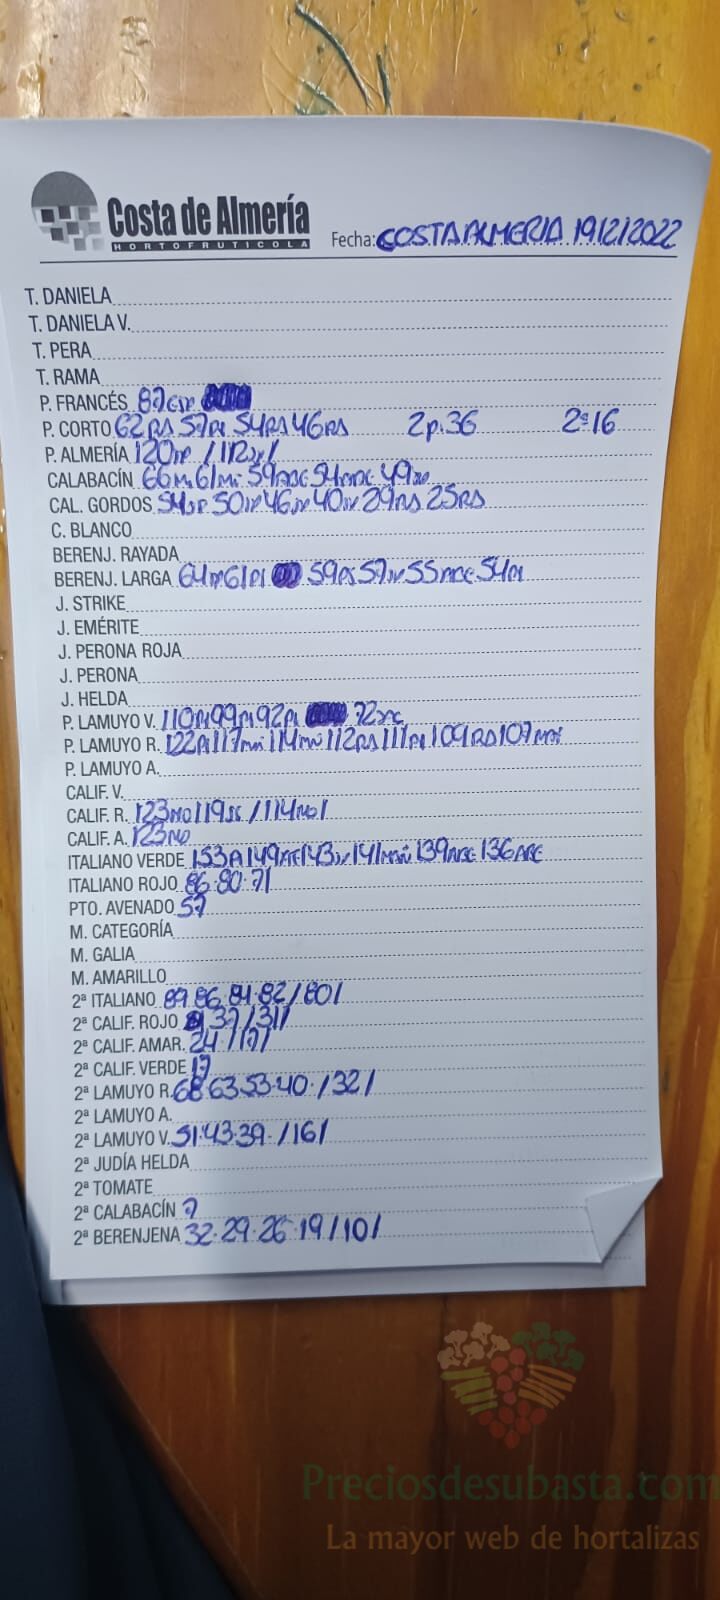 Costa de Almería
HORTOFRUTICOLA
Fecha: COSTA ALMERIA 19/12/2022
T. DANIELA
T. DANIELA V.
T. PERA
T. RAMA
P. FRANCÉS 87
P. CORTO 62RS 57PI 54RS 46RS 2p.36 2ª16
P. ALMERÍA 120 /112 /
CALABACÍN 66 61 59 54 49
CAL. GORDOS 54 50 46 40 29RS 25RS
C. BLANCO
BERENJ. RAYADA
BERENJ. LARGA 64 61PI 59 57 55 54PI
J. STRIKE
J. EMÉRITE
J. PERONA ROJA
J. PERONA
J. HELDA
P. LAMUYO V. 110 99 92PI 72
P. LAMUYO R. 122PI 117 114 112RS 111PI 109RS 107
P. LAMUYO A.
CALIF. V.
CALIF. R. 123NO 119 /114NO/
CALIF. A. 123NO
ITALIANO VERDE 153A 149 143 141 139 136
ITALIANO ROJO 86.80.71
PTO. AVENADO 57
M. CATEGORÍA
M. GALIA
M. AMARILLO
2ª ITALIANO 89.86.84.82/80/
2ª CALIF. ROJO 37/31/
2ª CALIF. AMAR. 24./17/
2ª CALIF. VERDE 17
2ª LAMUYO R. 68.63.53.40./32/
2ª LAMUYO A.
2ª LAMUYO V. 51.43.39./16/
2ª JUDÍA HELDA
2ª TOMATE
2ª CALABACÍN 7
2ª BERENJENA 32.29.26.19/10/
Preciosdesubasta.com
La mayor web de hortalizas